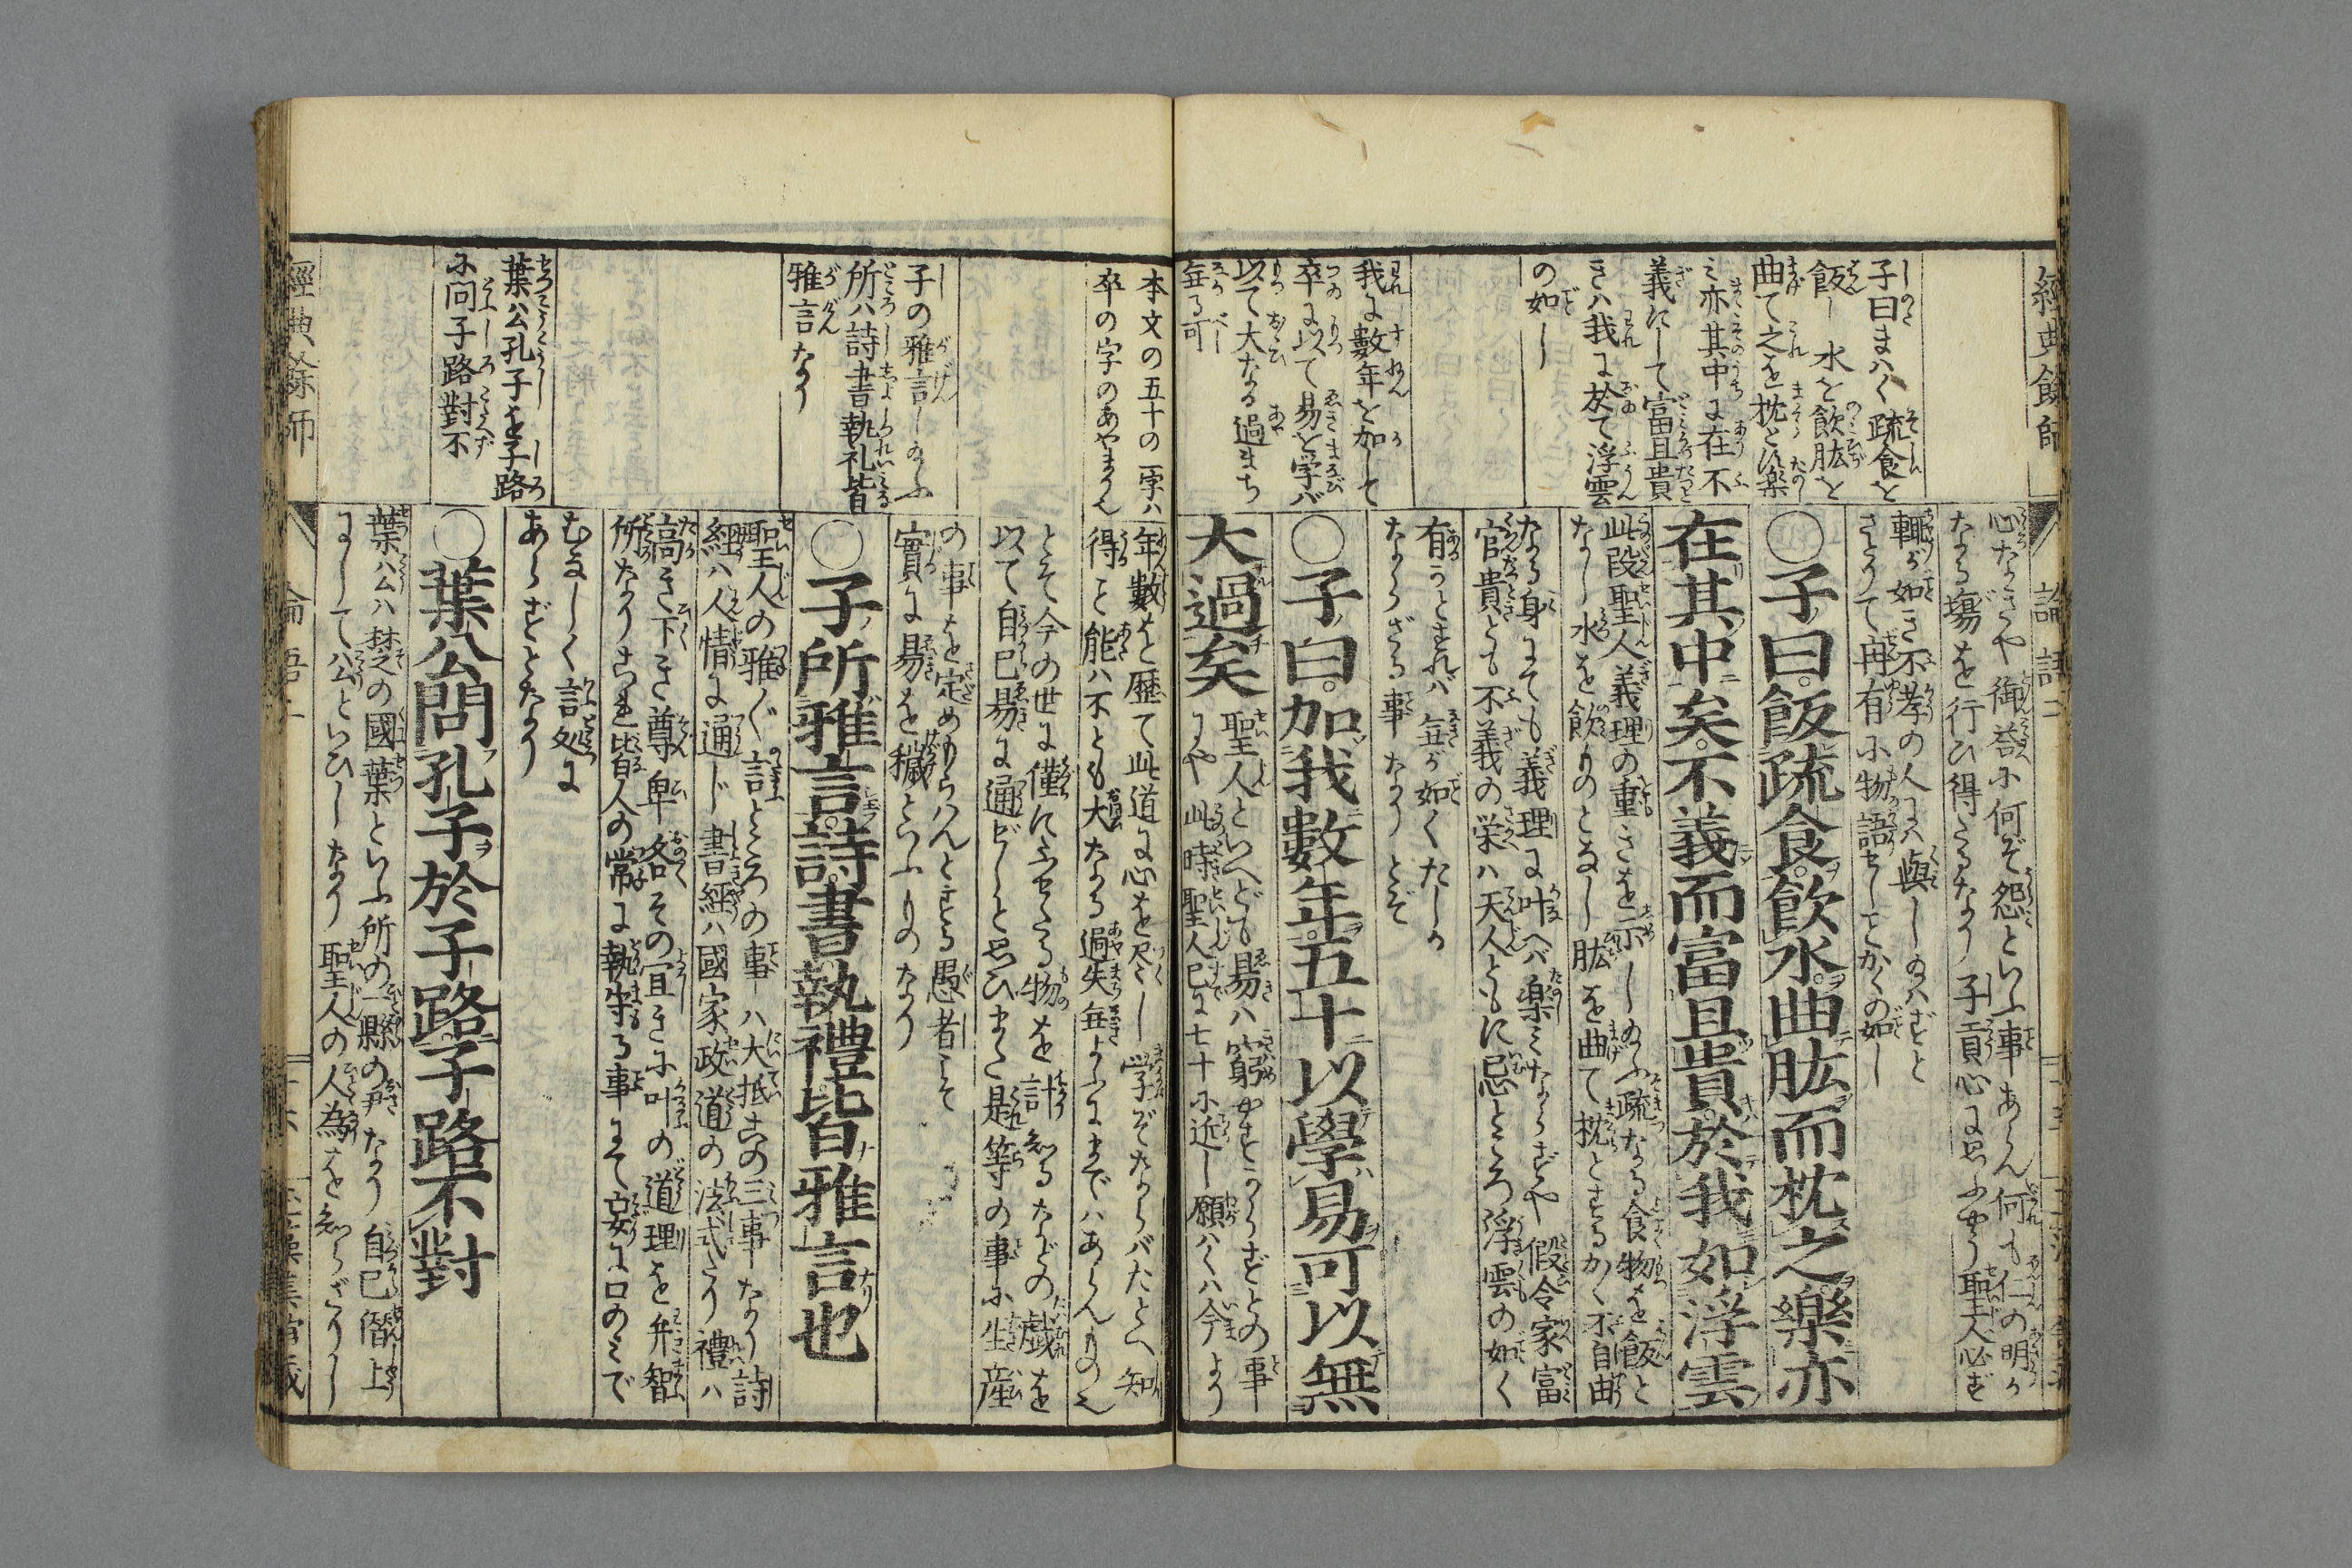 經典餘師
論語二
子曰まハく疏食を
飯し水を飲肱を
曲て之を枕とす樂
ミ亦其中に在不
義にして富且貴
きハ我に於て浮雲
の如し
我に數年を加して
卒に以て易を学バ
以て大なる過まち
無る可し
心なきや御答に何ぞ怨といふ事あらん何も仁の明か
なる場を行ひ得たるなり子貢心に思ふやう聖人必ず
輙が如き不孝の人にハ與し
さとりて冉有に物語せしとかくの如し
○子曰飯疏食飲水曲肱而枕之樂亦
在其中矣不義而富且貴於我如浮雲
此段聖人義理の重きを示し疏なる食物を飯と
なし水を飲ものとなし肱を曲て枕とするかく不自由
なる身にても義理に叶へバ樂ミならずや假令家富
官貴とも不義の栄ハ天人ともに忌ところ浮雲の如く
有かとすれバ無が如くたしか
ならざる事なりとぞ
○子曰加我數年五十以學易可以無
大過矣
聖人といへども易ハ窮やすからずとの事
にや此時聖人已に七十に近し願ハくハ今より
本文の五十の字ハ
卒の字のあやまり
子の雅言しのふ
所ハ詩書執礼皆
雅言なり
葉公孔子を子路
に問子路對不
年數を歴て此道に心を尽し学ぞならバたとへ知
得と能ハ不とも大なる過失無ようにまでハあらんものを
とぞ今の世に僅にふせたる物を計知るなどの戯を
以て自己易に通ぜしと思ひまた是等の事に生産
の事を定めもらハんとする愚者こそ
實に易を穢といふものなり
○子所雅言詩書執禮皆雅言也
聖人の雅ぐ言ところの事ハ大抵この三事なり詩
經ハ人情に通じ書經ハ國家政道の法式たり禮ハ
高き下き尊卑各その宜きに叶の道理を弁智
所なりこれ皆人の常に執守る事にて妄に口のミで
むなしく言処に
あらずとなり
○葉公問孔子於子路子路不對
葉公ハ楚の國葉といふ所の縣の尹なり自己僭上
にして公といひしなり聖人の人為を知らざりし
經典餘師